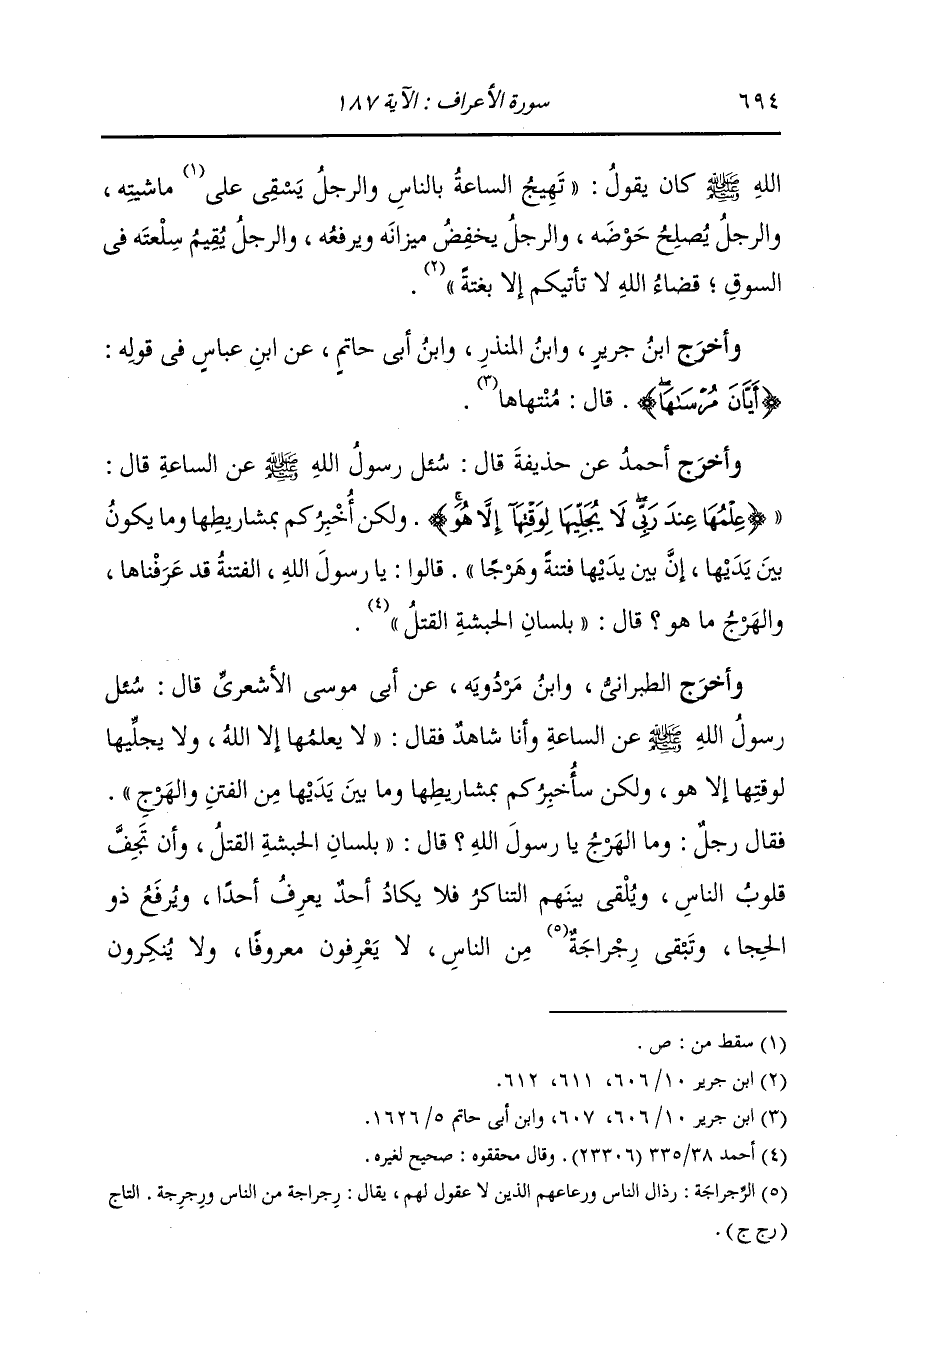 ٦٩٤ سورة الأعراف : الآية ١٨٧
اللهِ ﷺ كان يقولُ : « تَهِيجُ الساعةُ بالناسِ والرجلُ يَسْقِى على(١) ماشيتِه ،
والرجلُ يُصلِحُ حَوْضَه ، والرجلُ يخفِضُ ميزانَه ويرفعُه ، والرجلُ يُقِيمُ سِلْعتَه فى
السوقِ ؛ قضاءُ اللهِ لا تأتيكم إلا بغتةً »(٢) .
وأخرَج ابنُ جريرٍ ، وابنُ المنذرِ ، وابنُ أبى حاتمٍ ، عن ابنِ عباسٍ فى قولِه :
﴿أَيَّانَ مُرْسَىٰهَاۖ﴾ . قال : مُنْتهاها(٣) .
وأخرَج أحمدُ عن حذيفةَ قال : سُئل رسولُ اللهِ ﷺ عن الساعةِ قال :
« ﴿عِلْمُهَا عِندَ رَبِّىۖ لَا يُجَلِّيهَا لِوَقْتِهَآ إِلَّا هُوَۚ﴾ . ولكن أُخْبِرُكم بمشاريطِها وما يكونُ
بينَ يَدَيْها ، إنَّ بين يدَيْها فتنةً وهَرْجًا » . قالوا : يا رسولَ اللهِ ، الفتنةُ قد عَرَفْناها ،
والهَرْجُ ما هو ؟ قال : « بلسانِ الحبشةِ القتلُ »(٤) .
وأخرَج الطبرانىُّ ، وابنُ مَرْدُويَه ، عن أبى موسى الأشعرىِّ قال : سُئل
رسولُ اللهِ ﷺ عن الساعةِ وأنا شاهدٌ فقال : « لا يعلمُها إلا اللهُ ، ولا يجلِّيها
لوقتِها إلا هو ، ولكن سأُخبِرُكم بمشاريطِها وما بينَ يَدَيْها مِن الفتنِ والهَرْجِ » .
فقال رجلٌ : وما الهَرْجُ يا رسولَ اللهِ ؟ قال : « بلسانِ الحبشةِ القتلُ ، وأن تَجِفَّ
قلوبُ الناسِ ، ويُلْقى بينَهم التناكرُ فلا يكادُ أحدٌ يعرِفُ أحدًا ، ويُرفَعُ ذو
الحِجا ، وتَبْقى رِجْراجَةٌ(٥) مِن الناسِ ، لا يَعْرِفون معروفًا ، ولا يُنكِرون
(١) سقط من : ص .
(٢) ابن جرير ١٠/ ٦٠٦، ٦١١، ٦١٢.
(٣) ابن جرير ١٠/ ٦٠٦، ٦٠٧، وابن أبى حاتم ٥/ ١٦٢٦.
(٤) أحمد ٣٣٥/٣٨ (٢٣٣٠٦) . وقال محققوه : صحيح لغيره .
(٥) الرِّجراجَة : رذال الناس ورعاعهم الذين لا عقول لهم ، يقال : رِجراجة من الناس ورِجرِجة . التاج
(رج ج) .